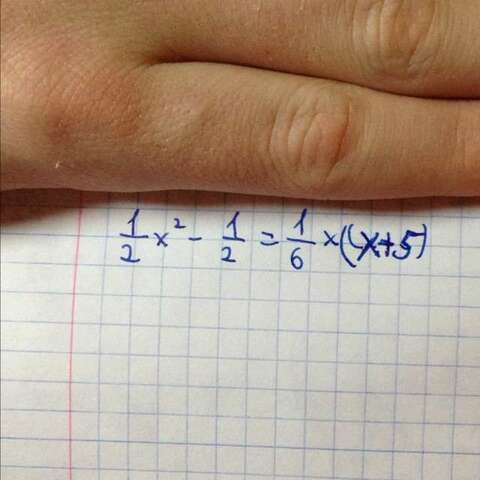 1/2 x² - 1/2 = 1/6 x(x+5)